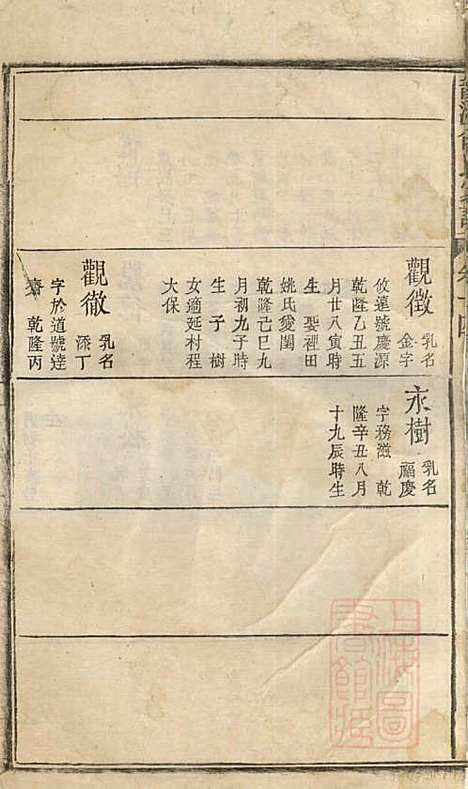 觀徵
乳名
金字
攸運號慶源
乾隆乙丑五
月廿八寅時
生 娶裡田
姚氏愛閨
乾隆己巳九
月初九子時
生 子 樹
女適延村程
大保
觀徹
乳名
添丁
字於道號達
齋 乾隆丙
永樹
乳名
福慶
字務滋 乾
隆辛丑八月
十九辰時生
上海圖
書館藏